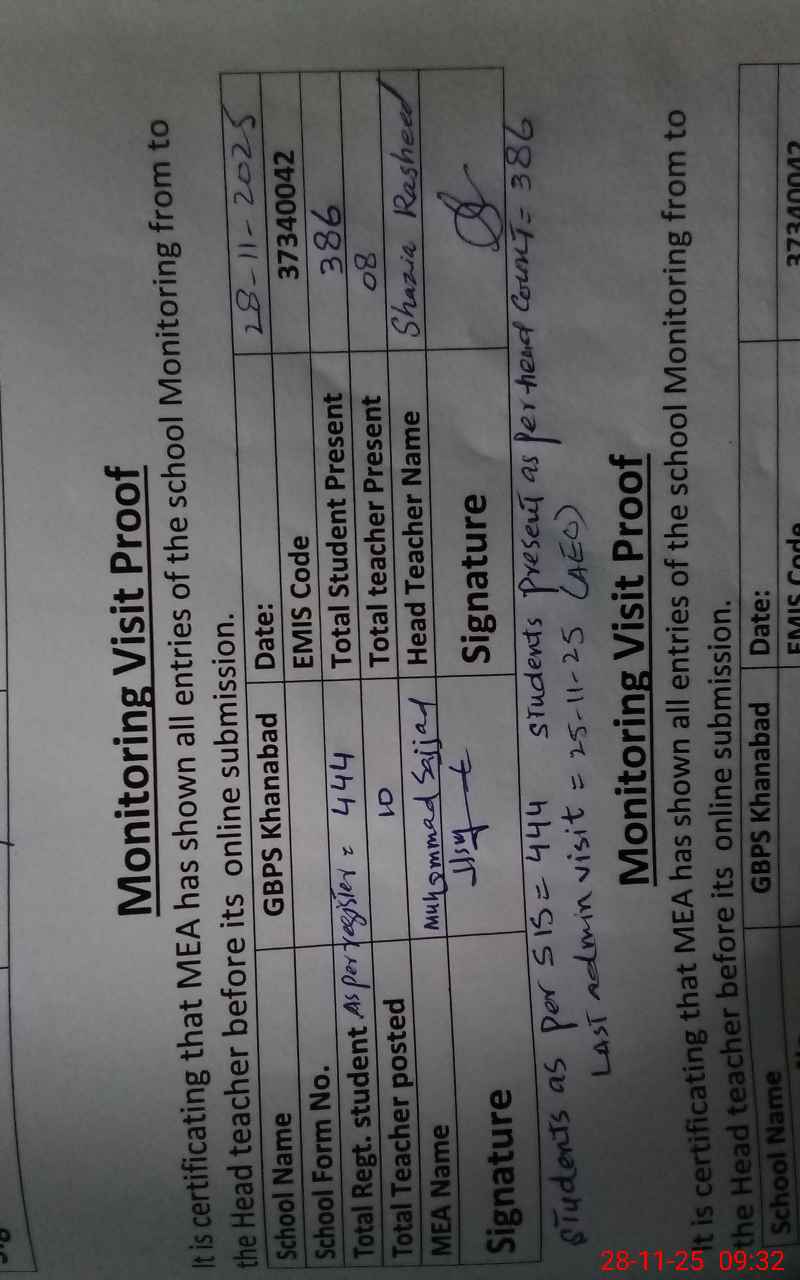 Monitoring Visit Proof
It is certificating that MEA has shown all entries of the school Monitoring from to
the Head teacher before its online submission.
School Name GBPS Khanabad Date: 28-11-2025
School Form No. EMIS Code 37340042
Total Regt. student As per register = 444 Total Student Present 386
Total Teacher posted 10 Total teacher Present 08
MEA Name Muhammad Sajjad Head Teacher Name Shazia Rasheed
Signature Signature
Students as per SIS = 444 Students Present as per head Count = 386
Last admin visit = 25-11-25 (AEO)
Monitoring Visit Proof
It is certificating that MEA has shown all entries of the school Monitoring from to
the Head teacher before its online submission.
School Name GBPS Khanabad Date:
EMIS Code 37340042
28-11-25 09:32